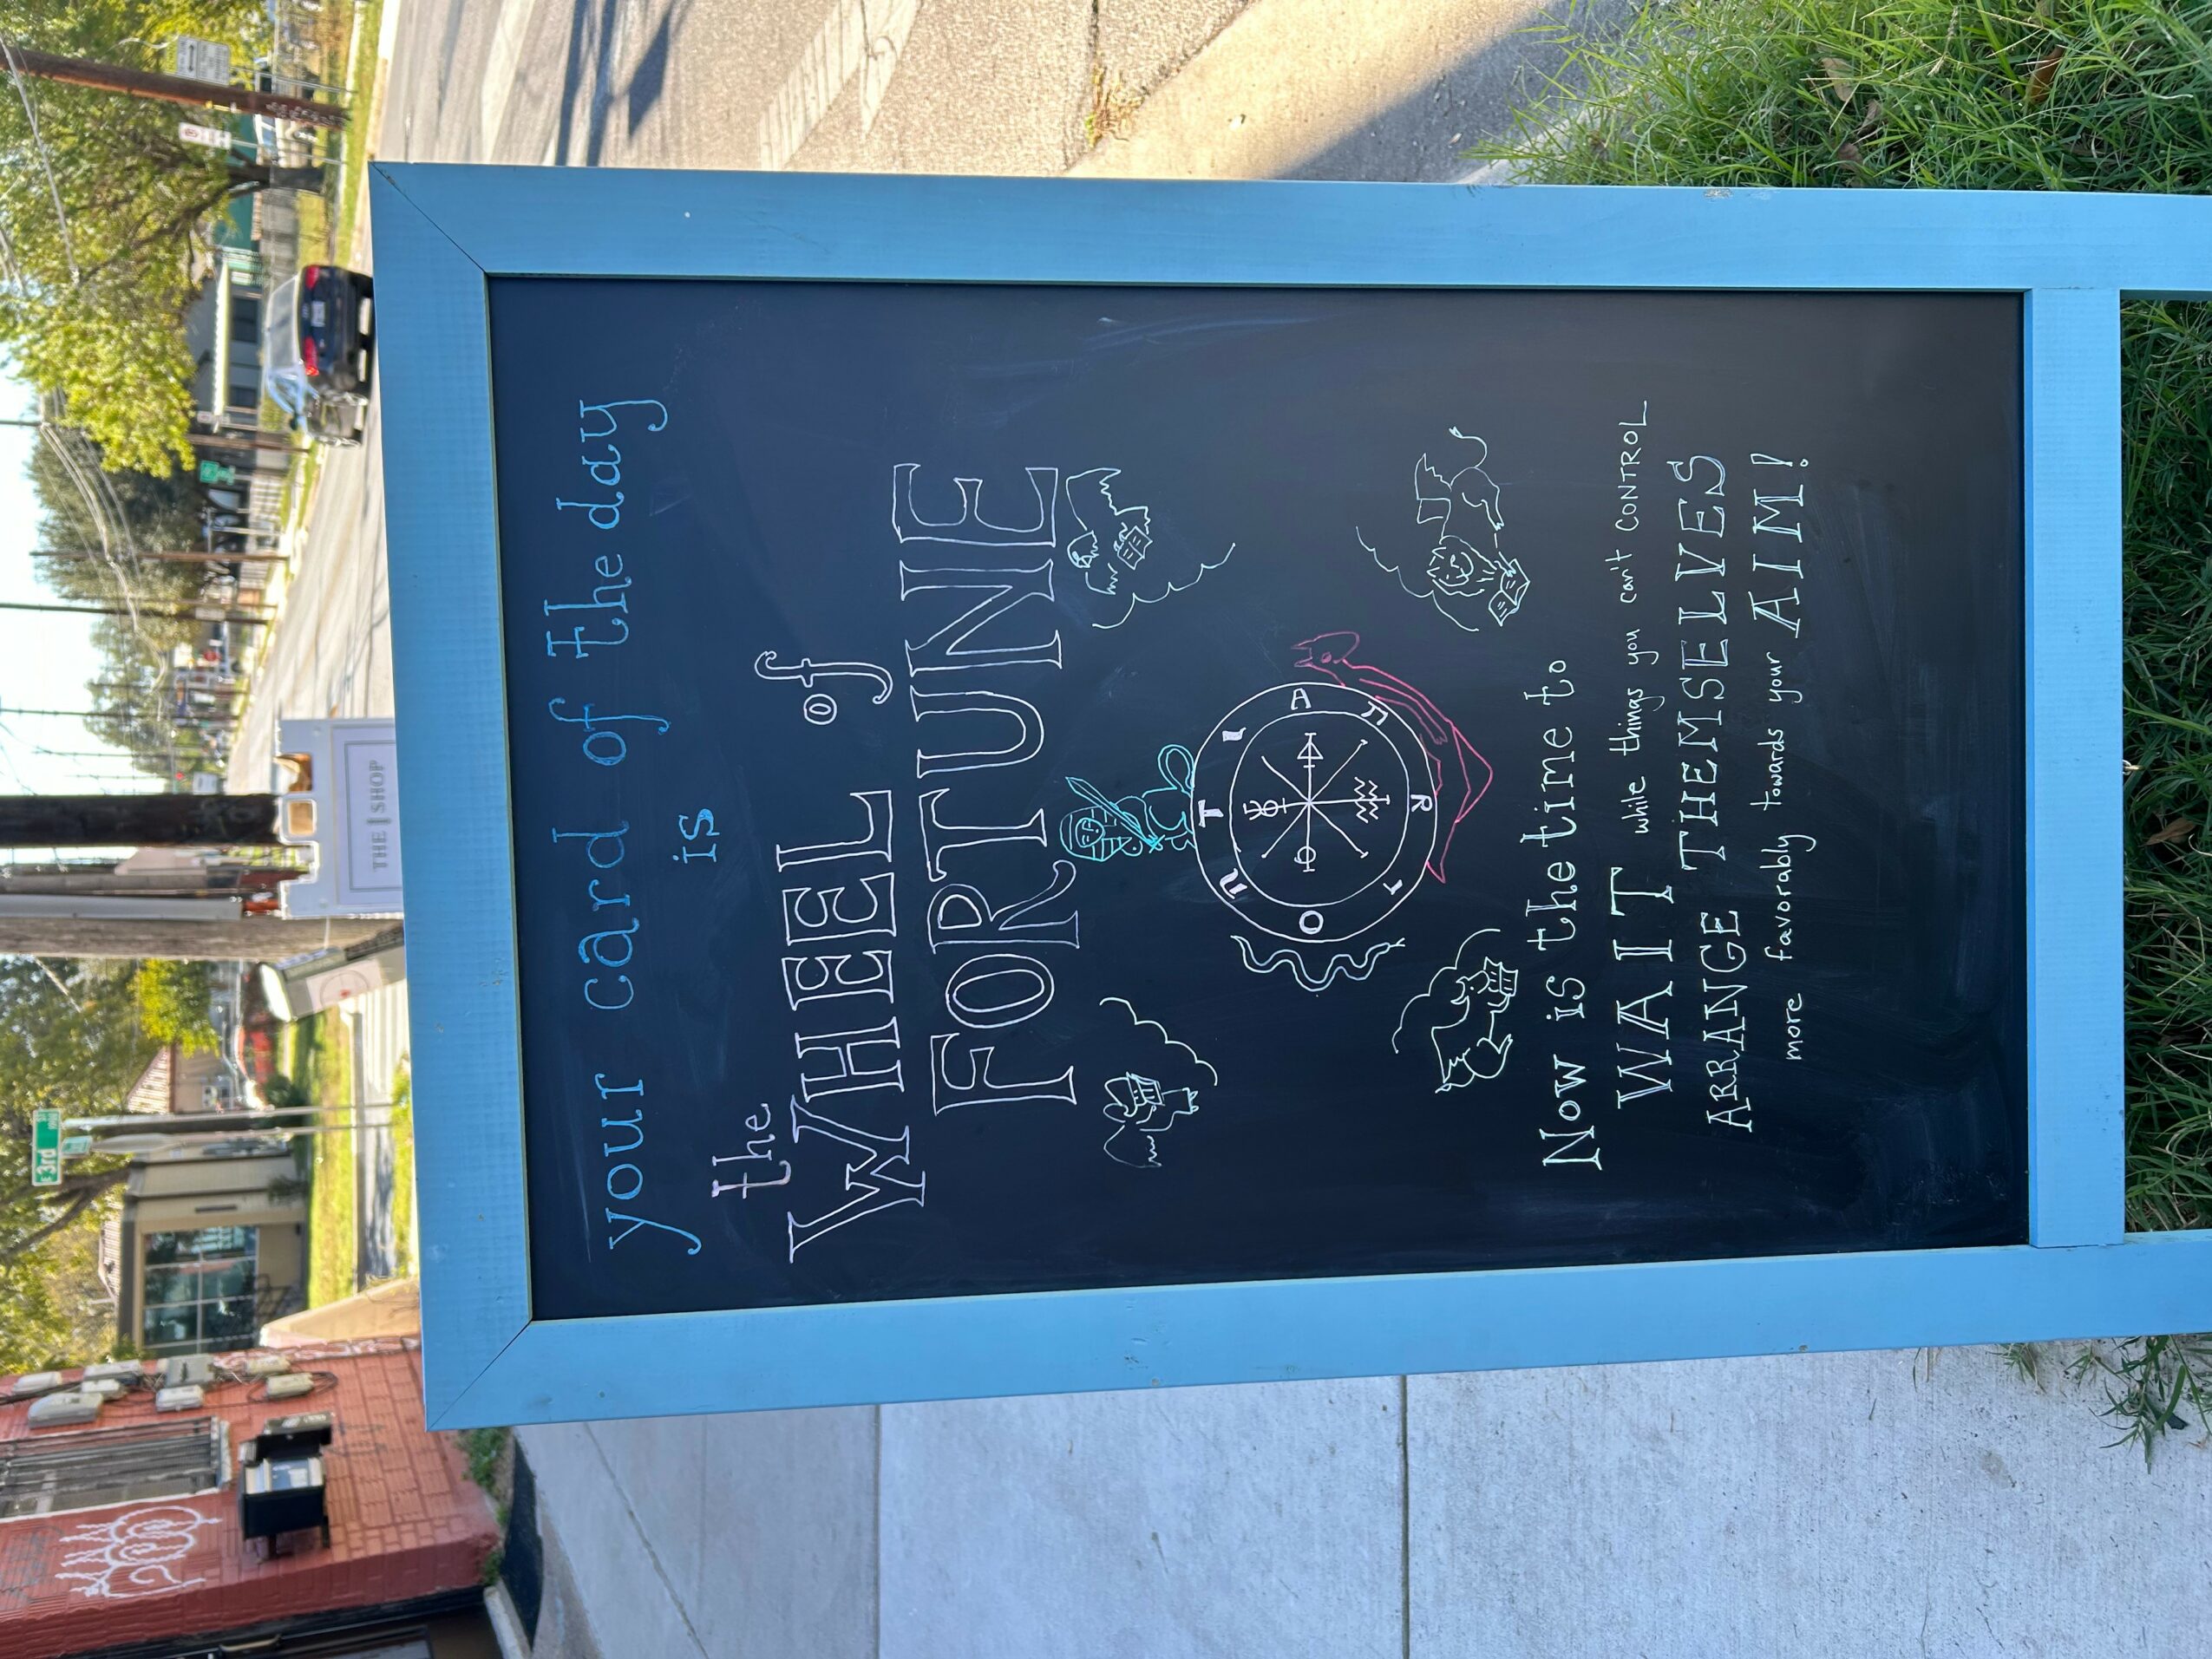 your card of the day
is
the
WHEEL of
FORTUNE
T
I
A
ח
R
I
O
ע
Now is the time to
WAIT while things you can't CONTROL
ARRANGE THEMSELVES
more favorably towards your AIM!
THE | SHOP
E 3rd